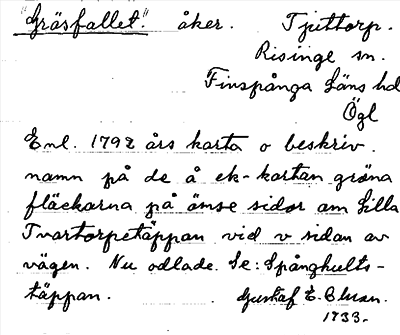 "Gräsfallet." åker. Tjuttorp.
Risinge sn.
Finspånga Läns hd
Ögl
Enl. 1792 års karta o beskriv.
namn på de å ek-kartan gröna
fläckarna på ömse sidor om Lilla
Tvartorpetäppan vid v sidan av
vägen. Nu odlade. Se: Spånghults-
täppan. Gustaf E. Olsson.
1933.